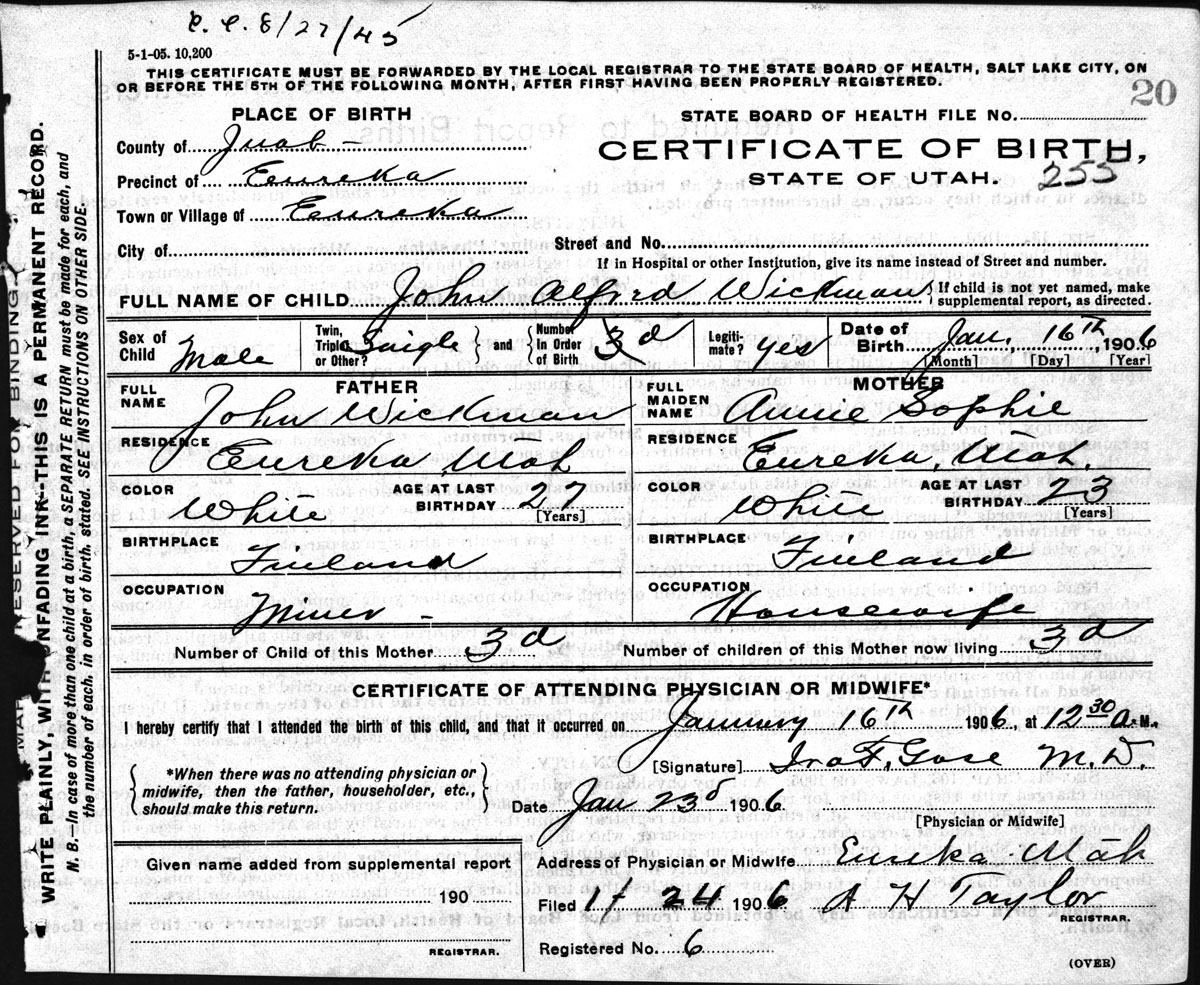 C. C. 8/27/45
5-1-05. 10,200
THIS CERTIFICATE MUST BE FORWARDED BY THE LOCAL REGISTRAR TO THE STATE BOARD OF HEALTH, SALT LAKE CITY, ON
OR BEFORE THE 5TH OF THE FOLLOWING MONTH, AFTER FIRST HAVING BEEN PROPERLY REGISTERED.
20
PLACE OF BIRTH
STATE BOARD OF HEALTH FILE No.
County of Juab
CERTIFICATE OF BIRTH,
Precinct of Eureka
STATE OF UTAH. 255
Town or Village of Eureka
City of Street and No.
If in Hospital or other Institution, give its name instead of Street and number.
FULL NAME OF CHILD John Alfrd Wickman { If child is not yet named, make supplemental report, as directed.
Sex of Child Male Twin, Triplet, or Other? Single } and { Number In Order of Birth 3d Legiti- mate? yes Date of Birth Jan. 16th 1906
[Month] [Day] [Year]
FATHER MOTHER
FULL NAME John Wickman FULL MAIDEN NAME Annie Sophie
RESIDENCE Eureka Utah RESIDENCE Eureka, Utah.
COLOR White AGE AT LAST BIRTHDAY 27 [Years] COLOR White AGE AT LAST BIRTHDAY 23 [Years]
BIRTHPLACE Finland BIRTHPLACE Finland
OCCUPATION Miner - OCCUPATION Housewife
Number of Child of this Mother 3d Number of children of this Mother now living 3d
CERTIFICATE OF ATTENDING PHYSICIAN OR MIDWIFE*
I hereby certify that I attended the birth of this child, and that it occurred on January 16th 1906, at 12 30 A.M.,
[Signature] Ira F. Gose M.D.
{ *When there was no attending physician or midwife, then the father, householder, etc., should make this return. }
Date Jan 23d 1906
[Physician or Midwife]
Given name added from supplemental report
Address of Physician or Midwife Eureka Utah
190
Filed 1/ 24 1906 A H Taylor
REGISTRAR.
REGISTRAR.
Registered No. 6
(OVER)
MARGIN RESERVED FOR BINDING.
WRITE PLAINLY, WITH UNFADING INK-THIS IS A PERMANENT RECORD.
N. B.—In case of more than one child at a birth, a SEPARATE RETURN must be made for each, and
the number of each, in order of birth, stated. SEE INSTRUCTIONS ON OTHER SIDE.